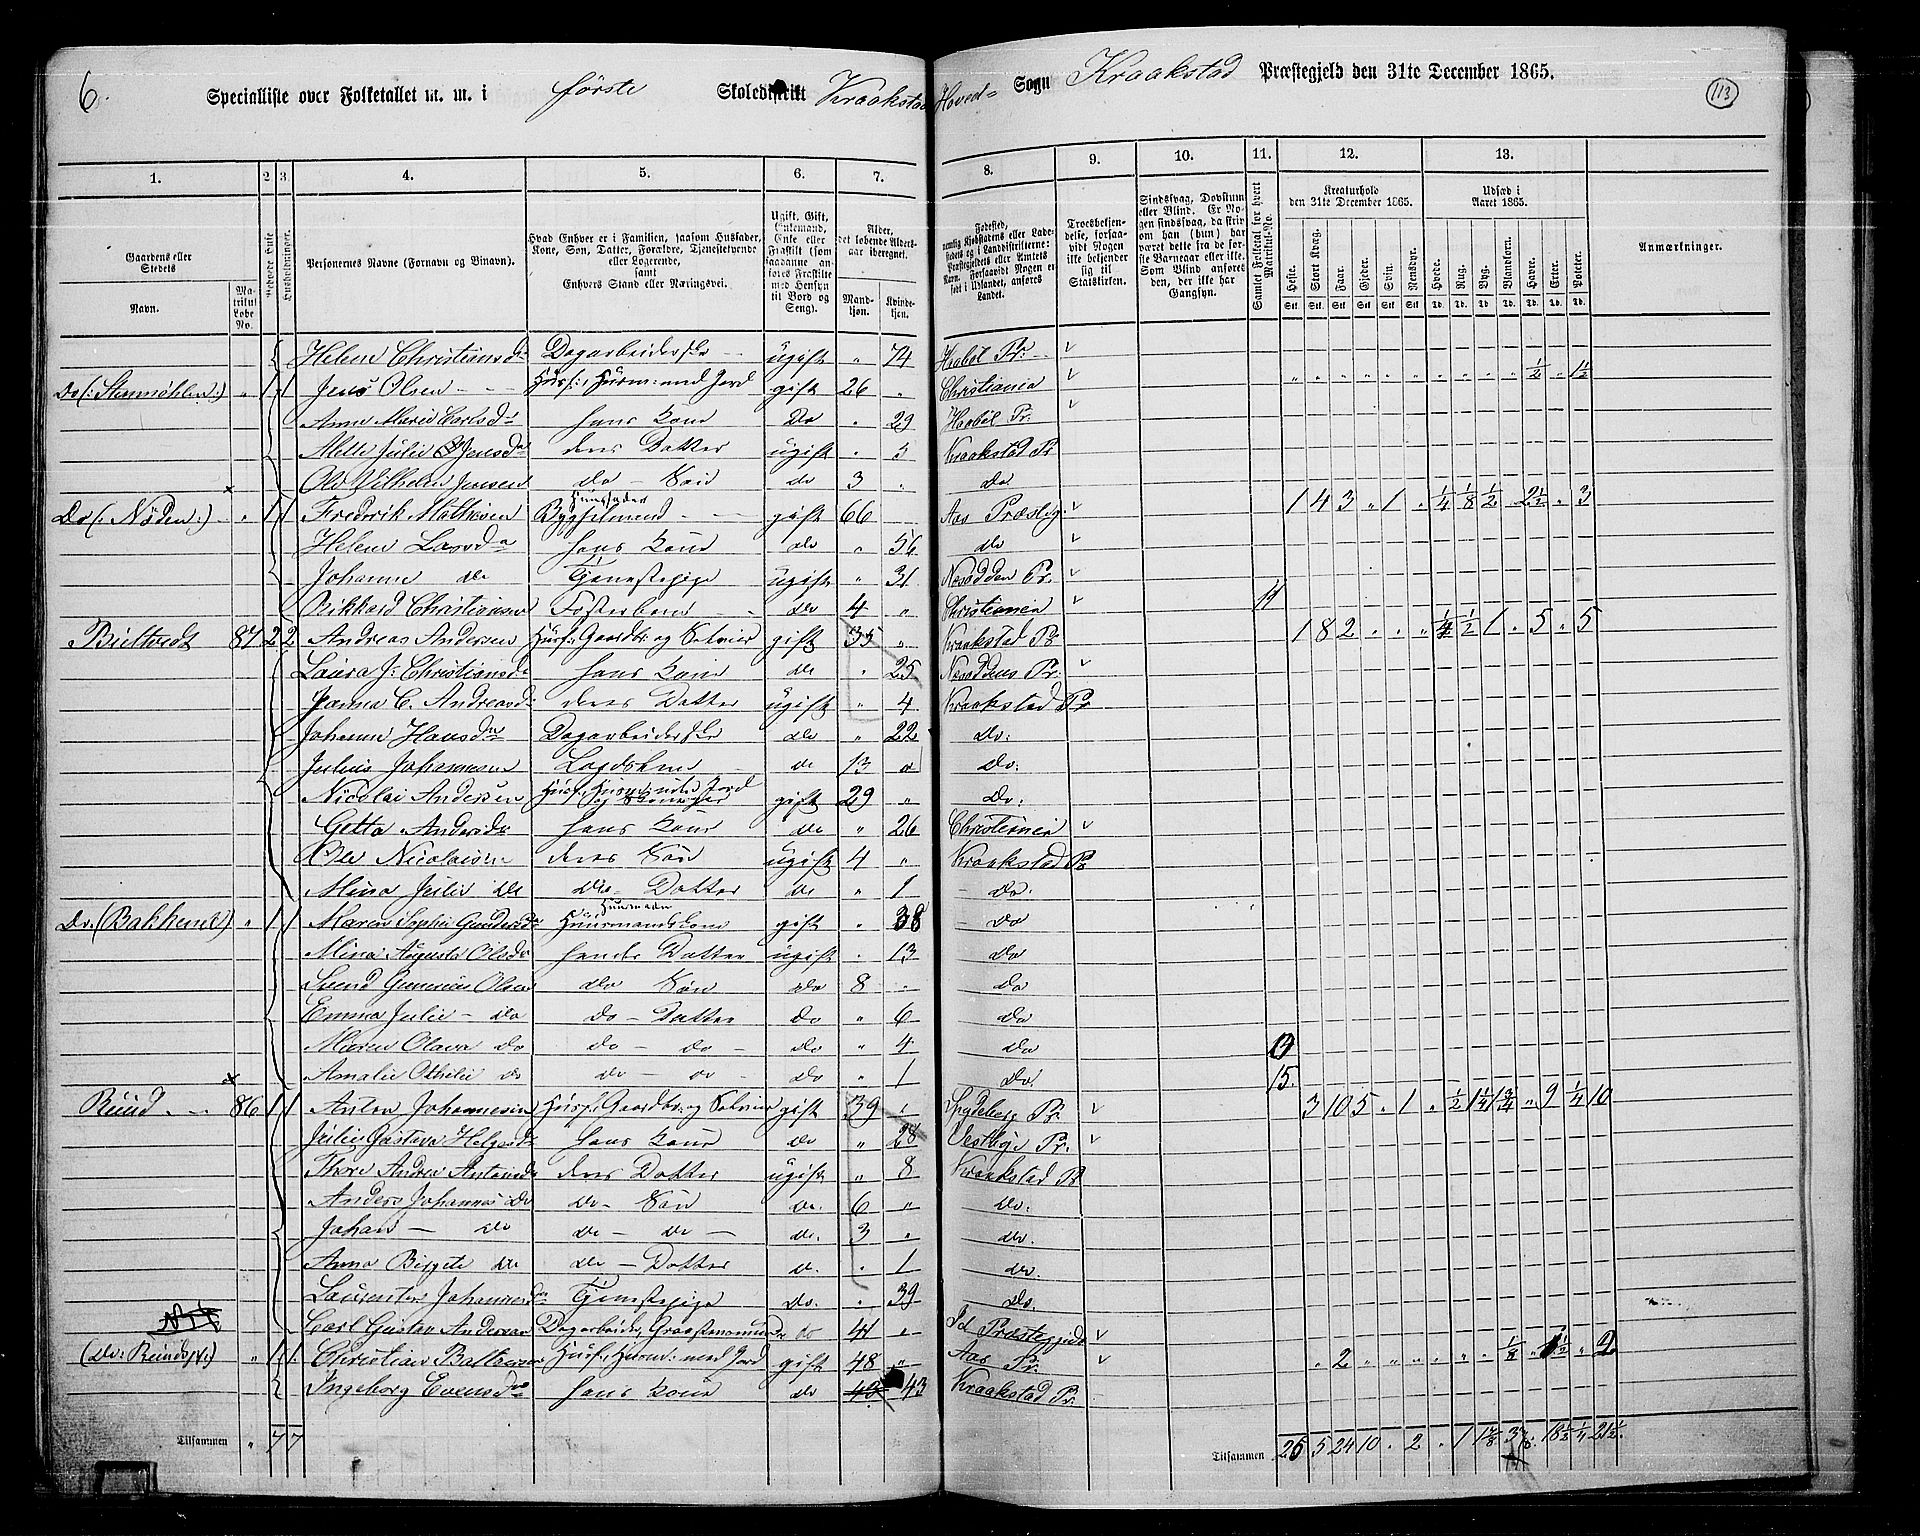 6. Specialliste over Folketallet m. m. i første Skoledistrikt Kraakstad Hoved- Sogn Kraakstad Præstegjeld den 31te December 1865. 113
1. 2 3. 4. 5. 6. 7. 8. 9. 10. 11. 12. 13.
Gaardens eller Stedets Navn. Matrikul Løbe No. Bebodde Huse Husholdninger. Personernes Navne (Fornavn og Binavn). Hvad Enhver er i Familien, saasom Husfader, Kone, Søn, Datter, Forældre, Tjenestetyende eller Logerende, samt Enhvers Stand eller Næringsvei. Ugift, Gift, Enkemand, Enke eller Fraskilt (saasom saadanne anføres Fraskilte med Hensyn til Bord og Seng). Alder, det løbende Aldersaar iberegnet. Mandkjøn. Kvindekjøn.
Fødested, Troesbekjendelse, forsaavidt Nogen ikke bekjender sig til Statskirken. Sindssvag, Døvstum eller Blind. Samlet Folketal for hvert Matrikul-No. Kreaturhold den 31te December 1865. Udsæd i Aaret 1865. Anmærkninger.
Heste. Stort Kvæg. Faar. Gjeder. Svin. Rensdyr. Hvede. Rug. Byg. Blandkorn. Havre. Erter. Poteter.
Helene Christiansd Dagarbeiderske ugift " 74 Haabøl Pr:
Do (: Stenmøhlen :) " 1 1 Jens Olsen Husf: Husm: med Jord gift 26 " Christiania " " " " " " " " " " ½ " 1½
Anne Marie Carlsd hans Kone do " 29 Haabøl Pr.
Mette Julie Jensd deres Datter ugift " 5 Kraakstad Pr
Ole Vilhelm Jensen do - Søn do 3 " do
Do (: Nøden :) " 1 1 Fredrik Mathesen Huusfader gift 66 Aas Præsteg: 1 4 3 " 1 " ¼ ⅛ ½ " 2½ " 3
Helene Larsda hans Kone do " 56 do
Johanne do Tjenestepige ugift " 31 Næsodden Pr.
Rikhard Christiansen Fosterbarn do 4 " Christiania 11
Bieltvedt 87 2 2 Andreas Andersen Husf: Gaardbr: og Selveier gift 35 " Kraakstad Pr 1 8 2 " " " ¼ ½ 1 " 5 " 5
Laura J: Christiansd hans Kone do " 25 Næsoddens Pr.
Janna C. Andreasd deres Datter ugift " 4 Kraakstad Pr
Johanne Hansda Dagarbeiderske do " 22 do:
Julius Johannesen Lægdslem do 13 " Do:
Nicolai Andersen Husf: Husm: uden Jord gift 29 " Do:
Getta Andersd hans Kone do " 26 Christiania
Ole Nicolaisen deres Søn ugift 4 " Kraakstad Pr
Mina Julie do do - Datter do " 1 do.
Do. (Bakkene) " 1 1 Maren Sophie Gundersd Huusmandskone gift " 38 do
Mina Augusta Olsd hendes Datter ugift " 13 do
Svend Gunerius Olsen do Søn do 8 " do
Emma Julie - do do - Datter do " 6 do
Maren Olava do do - do - do " 4 do
Amalie Othilie do do - do do " 1 Do. 15.
Ruud 86 1 1 Anton Johannesen Husf: Gaardbr: og Selveier gift 39 " Spydeberg Pr: 3 10 5 " 1 " ½ 1¼ 1¾ " 9 ¼ 10
Julie Gustava Helgesd hans Kone do " 28 Vestbye Pr.
Thore Andrea Antonsd deres Datter ugift " 8 Kraakstad Pr
Anders Johannes do do - Søn do. 6 " do.
Johan - do do - do - do. 3 " do.
Anna Birgete do do - Datter d. " 1 do.
Laurentse Johannesda Tjenestepige do. " 39 Do.
Carl Gustav Andersen Dagarbeider, do 41 " Id Præstegjeld
(do: Ruud :) " 1 1. Christian Baltersen Husf: Husm: med Jord gift 48 " Aas Pr: " 2 " " " " " " ⅛ " 1½ " 2
Ingeborg Evensda hans Kone do 43 Kraakstad Pr.
Tilsammen " 7 7
Tilsammen 26 5 24 10 " 2 " 1 1⅞ 3⅜ " 18½ ¼ 21½